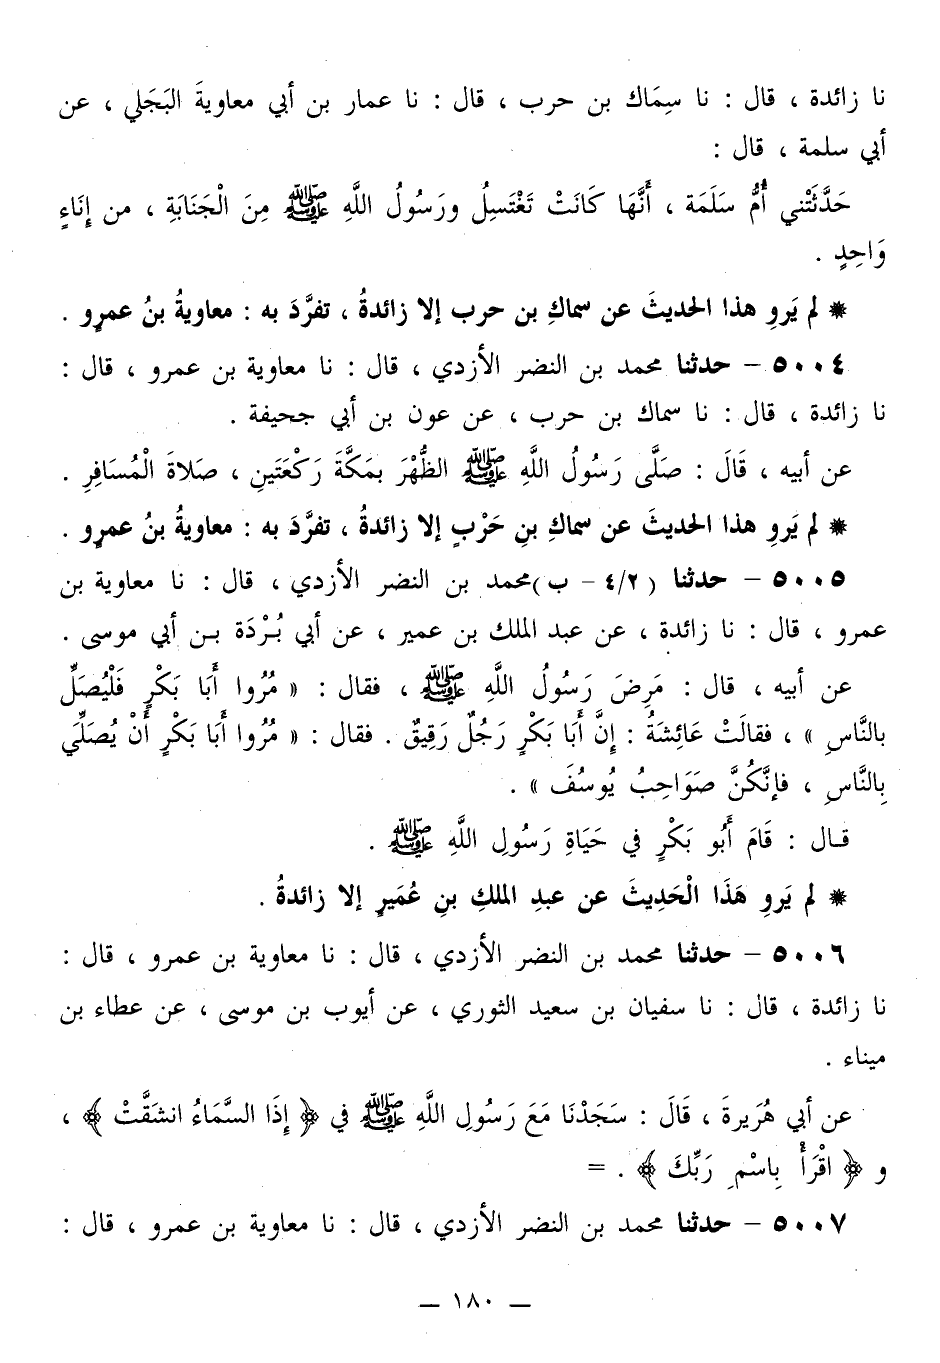 نا زائدة ، قال : نا سِمَاك بن حرب ، قال : نا عمار بن أبي معاويةَ البَجَلي ، عن
أبي سلمة ، قال :
حَدَّثَتْني أُمُّ سَلَمَة ، أَنَّهَا كَانَتْ تَغْتَسِلُ ورَسُولُ اللَّهِ ﷺ مِنَ الْجَنَابَةِ ، من إِنَاءٍ
وَاحِدٍ .
* لم يَروِ هذا الحديثَ عن سماكِ بن حرب إلا زائدةُ ، تفرَّدَ به : معاويةُ بنُ عمرٍو .
٥٠٠٤ – حدثنا محمد بن النضر الأزدي ، قال : نا معاوية بن عمرو ، قال :
نا زائدة ، قال : نا سماك بن حرب ، عن عون بن أبي جحيفة .
عن أبيه ، قَالَ : صَلَّى رَسُولُ اللَّهِ ﷺ الظُّهْرَ بمَكَّةَ رَكْعَتَينِ ، صَلاةَ الْمُسَافِرِ .
* لم يَروِ هذا الحديثَ عن سماكِ بنِ حَرْبٍ إلا زائدةُ ، تفرَّدَ به : معاويةُ بنُ عمرٍو .
٥٠٠٥ – حدثنا ( ٤/٢ – ب ) محمد بن النضر الأزدي ، قال : نا معاوية بن
عمرو ، قال : نا زائدة ، عن عبد الملك بن عمير ، عن أبي بُرْدَة بن أبي موسى .
عن أبيه ، قال : مَرِضَ رَسُولُ اللَّهِ ﷺ ، فقال : « مُرُوا أَبَا بَكْرٍ فَلْيُصَلِّ
بالنَّاسِ » ، فقالَتْ عَائِشَةُ : إِنَّ أَبَا بَكْرٍ رَجُلٌ رَقِيقٌ . فقال : « مُرُوا أَبَا بَكْرٍ أَنْ يُصَلِّيَ
بِالنَّاسِ ، فإنَّكُنَّ صَوَاحِبُ يُوسُفَ » .
قال : قَامَ أَبُو بَكْرٍ في حَيَاةِ رَسُولِ اللَّهِ ﷺ .
* لم يَروِ هَذَا الْحَدِيثَ عن عبدِ الملكِ بنِ عُمَيرٍ إلا زائدةُ .
٥٠٠٦ – حدثنا محمد بن النضر الأزدي ، قال : نا معاوية بن عمرو ، قال :
نا زائدة ، قال : نا سفيان بن سعيد الثوري ، عن أيوب بن موسى ، عن عطاء بن
ميناء .
عن أبي هُرَيرةَ ، قَالَ : سَجَدْنَا مَعَ رَسُولِ اللَّهِ ﷺ في ﴿ إِذَا السَّمَاءُ انشَقَّتْ ﴾ ،
و ﴿ اقْرَأْ بِاسْمِ رَبِّكَ ﴾ . =
٥٠٠٧ – حدثنا محمد بن النضر الأزدي ، قال : نا معاوية بن عمرو ، قال :
— ١٨٠ —